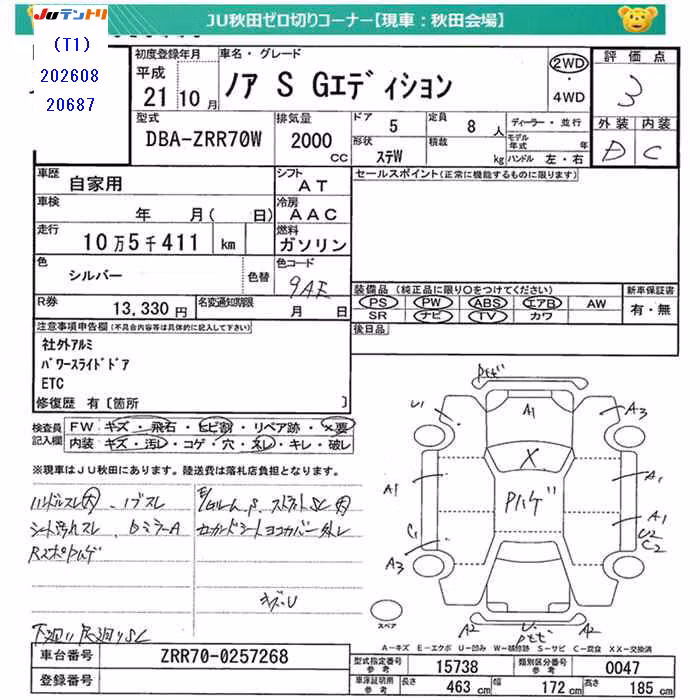 JUテントリ
JU秋田ゼロ切りコーナー【現車：秋田会場】
(T1)
202608
20687
初度登録年月
平成
21 10月
車名・グレード
ノア S Gエディション
2WD
・
4WD
評価点
3
型式
DBA-ZRR70W
排気量
2000
cc
ドア 5
定員 8 人
形状
ステW
積載
kg
ディーラー・並行
モデル年式 年
ハンドル 左・右
外装 内装
D C
車歴
自家用
シフト
AT
セールスポイント(正常に機能するものに限ります)
車検
年 月( 日)
冷房
AAC
走行
10万5千411 km
燃料
ガソリン
色
シルバー
色替
色コード
9AE
装備品 (純正品に限り○をつけてください)
新車保証書
PS PW ABS エアB AW
SR ナビ TV カワ
有・無
R券
13,330円
名変通知期限
月 日
後日品
注意事項申告欄(不具合内容等は具体的に記入して下さい)
社外アルミ
パワースライドドア
ETC
修復歴 有〔箇所 〕
検査員記入欄
FW キズ・飛石・ヒビ割・リペア跡・×要
内装 キズ・汚レ・コゲ・穴・スレ・キレ・破レ
※現車はJU秋田にあります。陸送費は落札店負担となります。
ハンドルスレ大
ノブスレ
シート汚れスレ
bミラーA
セカンドシートヨコカバー外レ
キズ・U
下廻り足廻りSC
PもげU1
A1
A3
X
Pハゲ
A1
A1
A1
C1
U2
C2
A3
A2
U
A2
スペア
A-キズ E-エクボ U-凹み W-補修跡 S-サビ C-腐食 XX-交換済
車台番号
ZRR70-0257268
型式指定番号
参考
15738
類別区分番号
参考
0047
登録番号
車庫証明用
参考
長さ 463 cm
幅 172 cm
高さ 185 cm